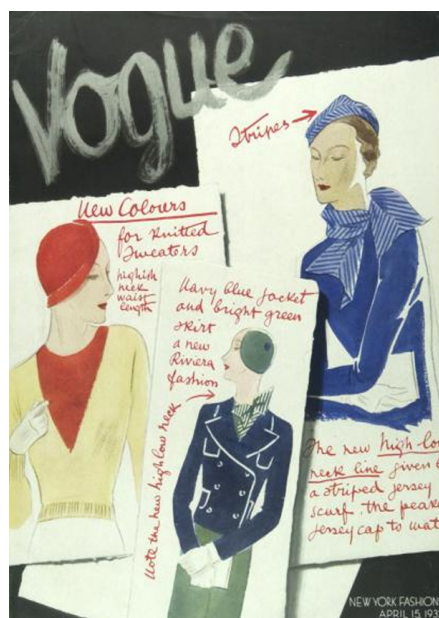 Vogue
Stripes
New Colours
for Knitted
Sweaters
highish
neck
waist
length
Navy blue jacket
and bright green
skirt
a new
Riviera
fashion
Note the new high low neck
The new high-lo
neck line given
a striped jersey
scarf. the peake
jersey cap to mat
NEW YORK FASHION
APRIL 15, 193